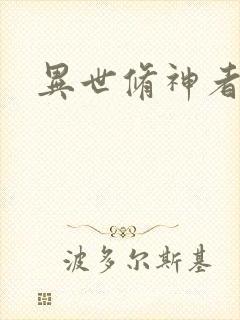 異世脩神者
波多尔斯基